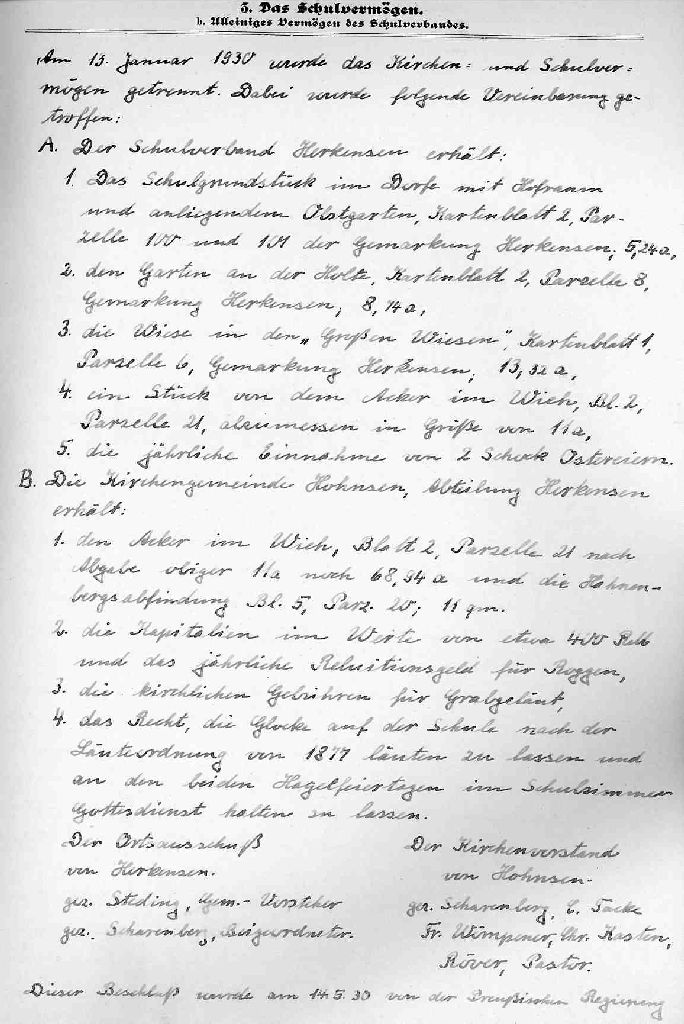 3. Das Schulvermögen.
b. Alleiniges Vermögen des Schulverbandes.
Am 13. Januar 1930 wurde das Kirchen- und Schulver-
mögen getrennt. Dabei wurde folgende Vereinbarung ge-
troffen:
A. Der Schulverband Herkensen erhält:
1. Das Schulgrundstück im Dorfe mit Hofraum
und anliegendem Obstgarten, Kartenblatt 2, Par-
zelle 100 und 101 der Gemarkung Herkensen; 5,24a,
2. den Garten an der Holtz, Kartenblatt 2, Parzelle 8,
Gemarkung Herkensen; 8,14a,
3. die Wiese in den „Großen Wiesen", Kartenblatt 1,
Parzelle 6, Gemarkung Herkensen; 13,32a,
4. ein Stück von dem Acker im Wieh, Bl. 2,
Parzelle 21, abzumessen in Größe von 11a,
5. die jährliche Einnahme von 2 Schock Ostereiern.
B. Die Kirchengemeinde Hohnsen, Abteilung Herkensen
erhält:
1. den Acker im Wieh, Blatt 2, Parzelle 21 nach
Abgabe obiger 11a noch 68,94a und die Hahnen-
bergsabfindung Bl. 5, Parz. 20; 11 qm.
2. die Kapitalien im Werte von etwa 400 RM
und das jährliche Reluitionsgeld für Roggen,
3. die kirchlichen Gebühren für Grabgeläut,
4. das Recht, die Glocke auf der Schule nach der
Läuteordnung von 1877 läuten zu lassen und
an den beiden Hagelfeiertagen im Schulzimmer
Gottesdienst halten zu lassen.
Der Ortsausschuß
von Herkensen.
gez. Steding, Gem.-Vorsteher
gez. Scharenberg, Beigeordneter.
Der Kirchenvorstand
von Hohnsen.
gez. Scharenberg, C. Tacke
Fr. Wömpener, Chr. Kasten,
Röver, Pastor.
Dieser Beschluß wurde am 14.5.30 von der Preußischen Regierung